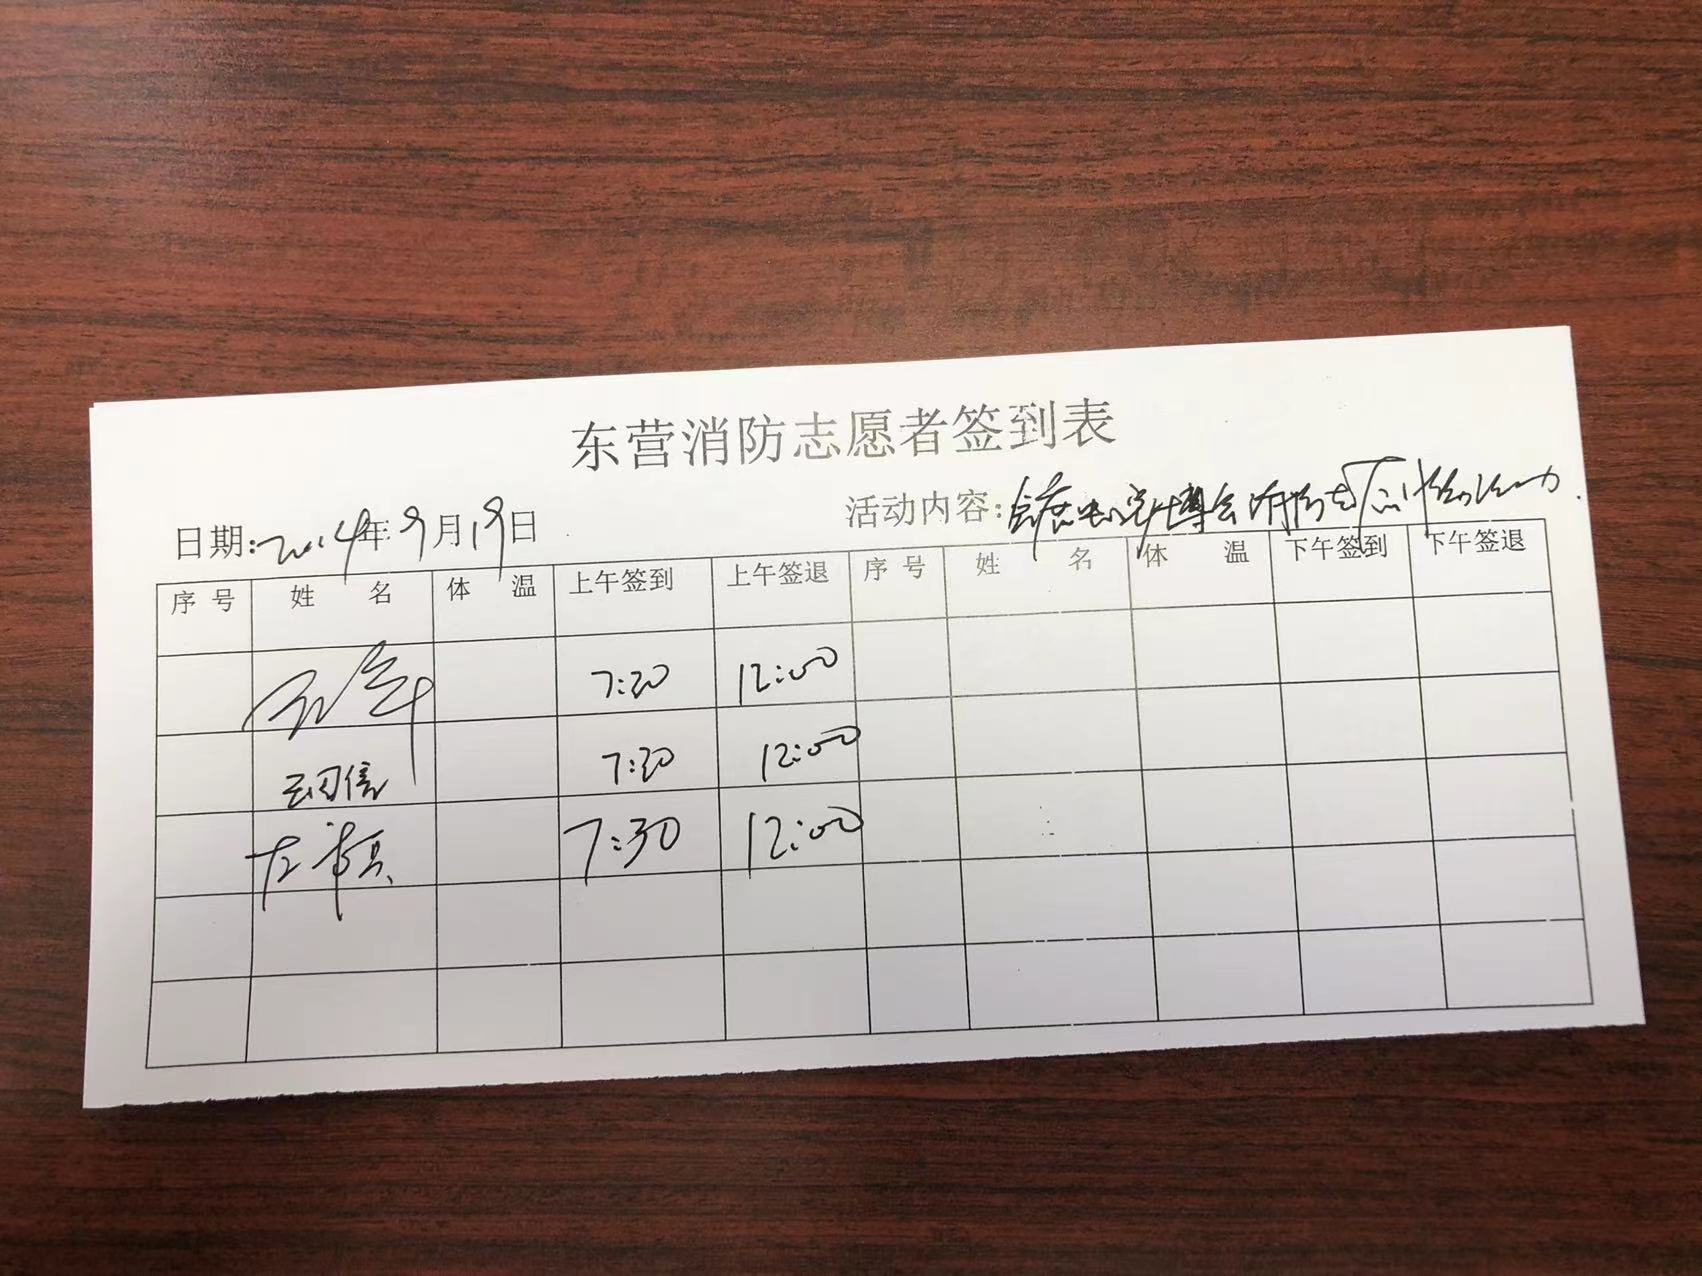 东营消防志愿者签到表
日期:2024年9月19日 活动内容:会展中心 博会消防志愿 活动.
序号 姓名 体温 上午签到 上午签退 序号 姓名 体温 下午签到 下午签退
7:30 12:00
7:30 12:00
7:30 12:00